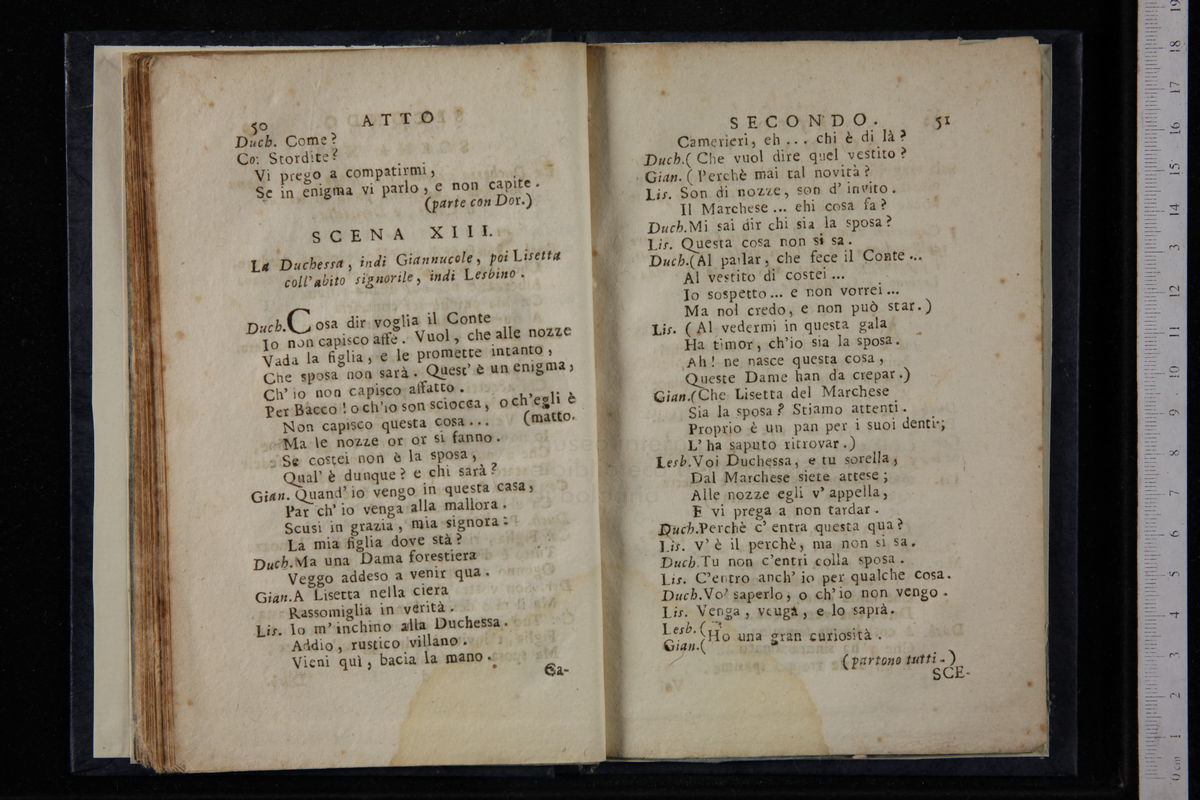 50 ATTO
Duch. Come?
Co: Stordite?
Vi prego a compatirmi,
Se in enigma vi parlo, e non capite.
(parte con Dor.)
SCENA XIII.
La Duchessa, indi Giannucole, poi Lisetta
coll'abito signorile, indi Lesbino.
Duch. Cosa dir voglia il Conte
Io non capisco affe. Vuol, che alle nozze
Vada la figlia, e le promette intanto,
Che sposa non sarà. Quest' è un enigma,
Ch' io non capisco affatto.
Per Bacco! o ch'io son sciocca, o ch'egli è
(matto.
Non capisco questa cosa...
Ma le nozze or or si fanno.
Se costei non è la sposa,
Qual' è dunque? e chi sarà?
Gian. Quand' io vengo in questa casa,
Par ch' io venga alla mallora.
Scusi in grazia, mia signora:
La mia figlia dove stà?
Duch. Ma una Dama forestiera
Veggo addeso a venir qua.
Gian. A Lisetta nella ciera
Rassomiglia in verità.
Lis. Io m' inchino alla Duchessa.
Addio, rustico villano.
Vieni quì, bacia la mano.
Ca-
SECONDO. 51
Camerieri, eh... chi è di là?
Duch. (Che vuol dire quel vestito?
Gian. (Perchè mai tal novità?
Lis. Son di nozze, son d' invito.
Il Marchese... ehi cosa fa?
Duch. Mi sai dir chi sia la sposa?
Lis. Questa cosa non si sa.
Duch. (Al parlar, che fece il Conte...
Al vestito di costei...
Io sospetto... e non vorrei...
Ma nol credo, e non può star.)
Lis. (Al vedermi in questa gala
Ha timor, ch'io sia la sposa.
Ah! ne nasce questa cosa,
Queste Dame han da crepar.)
Gian. (Che Lisetta del Marchese
Sia la sposa? Stiamo attenti.
Proprio è un pan per i suoi denti;
L' ha saputo ritrovar.)
Lesb. Voi Duchessa, e tu sorella,
Dal Marchese siete attese;
Alle nozze egli v' appella,
E vi prega a non tardar.
Duch. Perchè c' entra questa qua?
Lis. V' è il perchè, ma non si sa.
Duch. Tu non c'entri colla sposa.
Lis. C'entro anch' io per qualche cosa.
Duch. Vo' saperlo, o ch'io non vengo.
Lis. Venga, venga, e lo saprà.
Lesb. (
Gian. ( Ho una gran curiosità.
(partono tutti.)
SCE-